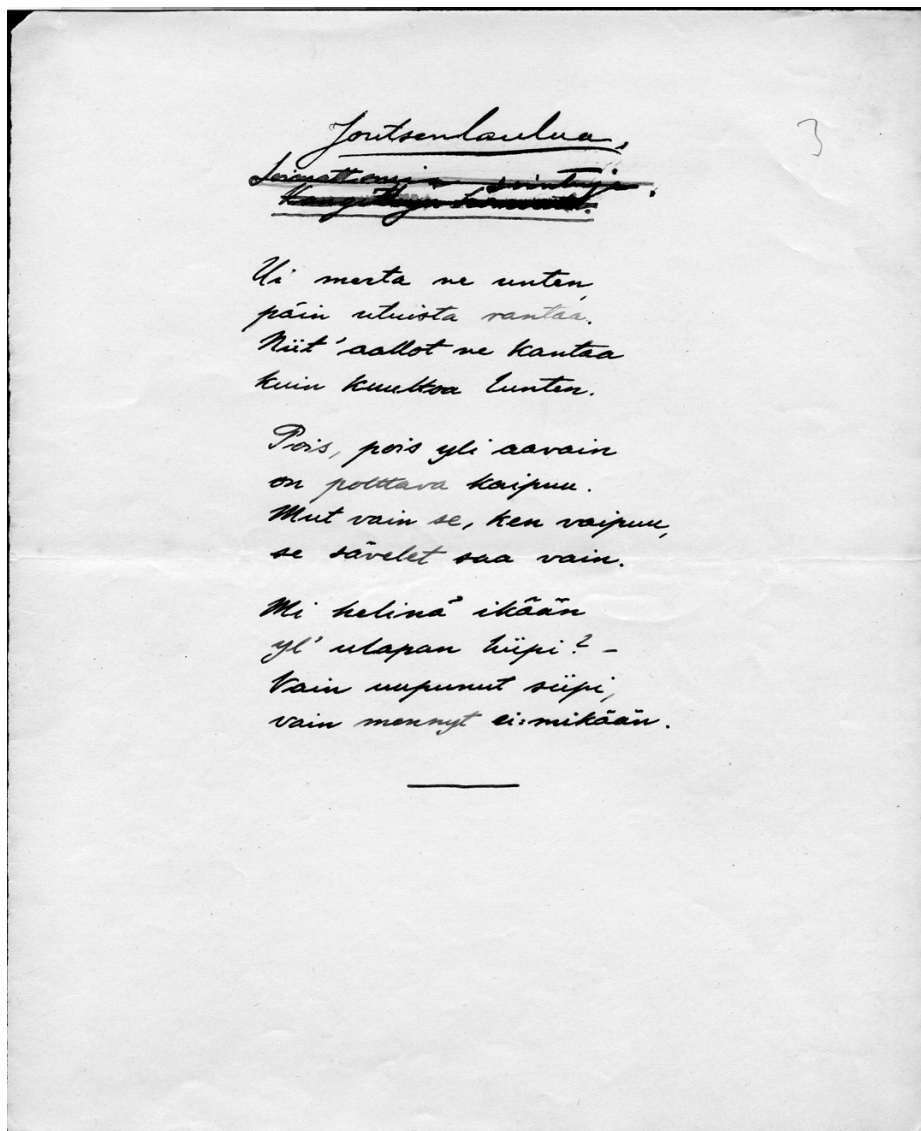 Joutsenlaulua.
3
sointuja.
Ui merta ne unten,
päin utuista rantaa.
Niit' aallot ne kantaa
kuin kuultoa lunten.
Pois, pois yli aavain
on polttava kaipuu.
Mut vain se, ken vaipuu,
se sävelet saa vain.
Mi helinä ikään
yl' ulapan hiipi? –
Vain uupunut siipi,
vain mennyt ei:mikään.